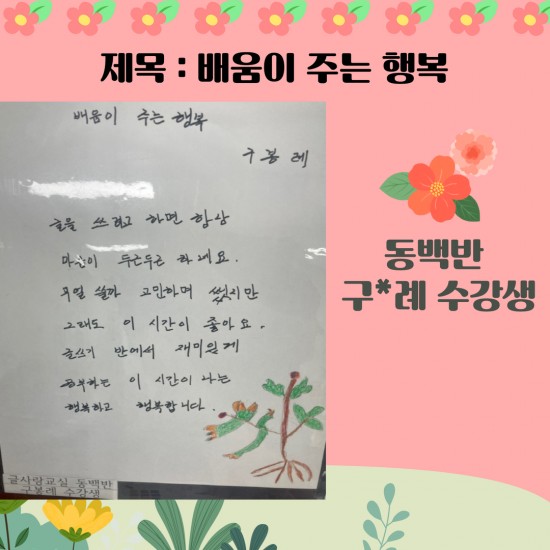 제목 : 배움이 주는 행복
배움이 주는 행복
구봉례
글을 쓰려고 하면 항상
마음이 두근두근 하네요.
무얼 쓸까 고민하며 썼지만
그래도 이 시간이 좋아요.
글쓰기 반에서 재미있게
공부하는 이 시간이 나는
행복하고 행복합니다.
동백반
구*례 수강생
글사랑교실 동백반
구봉례 수강생